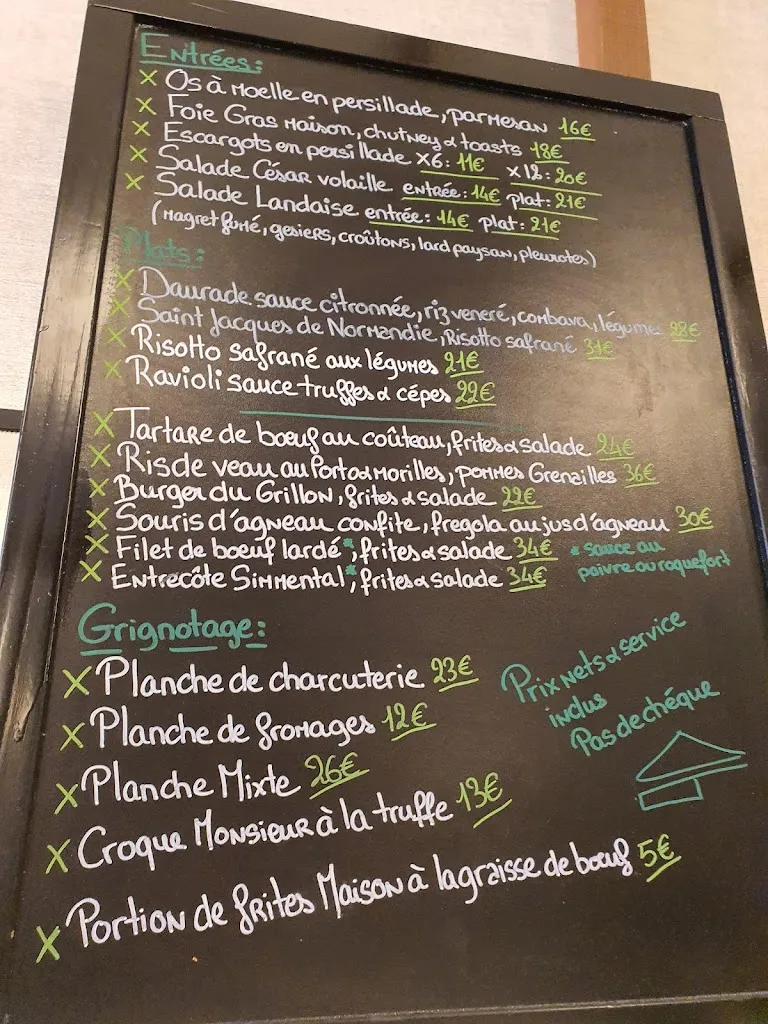 Entrées:
x Os à moelle en persillade, parmesan 16€
x Foie Gras maison, chutney & toasts 18€
x Escargots en persillade x6: 11€ x12: 20€
x Salade César volaille entrée: 14€ plat: 21€
x Salade Landaise entrée: 14€ plat: 21€
(magret fumé, gesiers, croûtons, lard paysan, pleurotes)
Plats:
x Daurade sauce citronnée, riz veneré, combava, légumes 28€
x Saint Jacques de Normandie, Risotto safrané 31€
x Risotto safrané aux légumes 21€
x Ravioli sauce truffes & cépes 22€
x Tartare de boeuf au coûteau, frites & salade 24€
x Ris de veau au Porto & Morilles, pommes Grenailles 36€
x Burger du Grillon, frites & salade 22€
x Souris d'agneau confite, fregola au jus d'agneau 30€
x Filet de boeuf lardé*, frites & salade 34€
x Entrecôte Simmental*, frites & salade 34€
* sauce au
poivre ou roquefort
Grignotage:
x Planche de charcuterie 23€
x Planche de fromages 12€
x Planche Mixte 26€
x Croque Monsieur à la truffe 13€
x Portion de frites Maison à la graisse de boeuf 5€
Prix nets & service
inclus
Pas de chéque